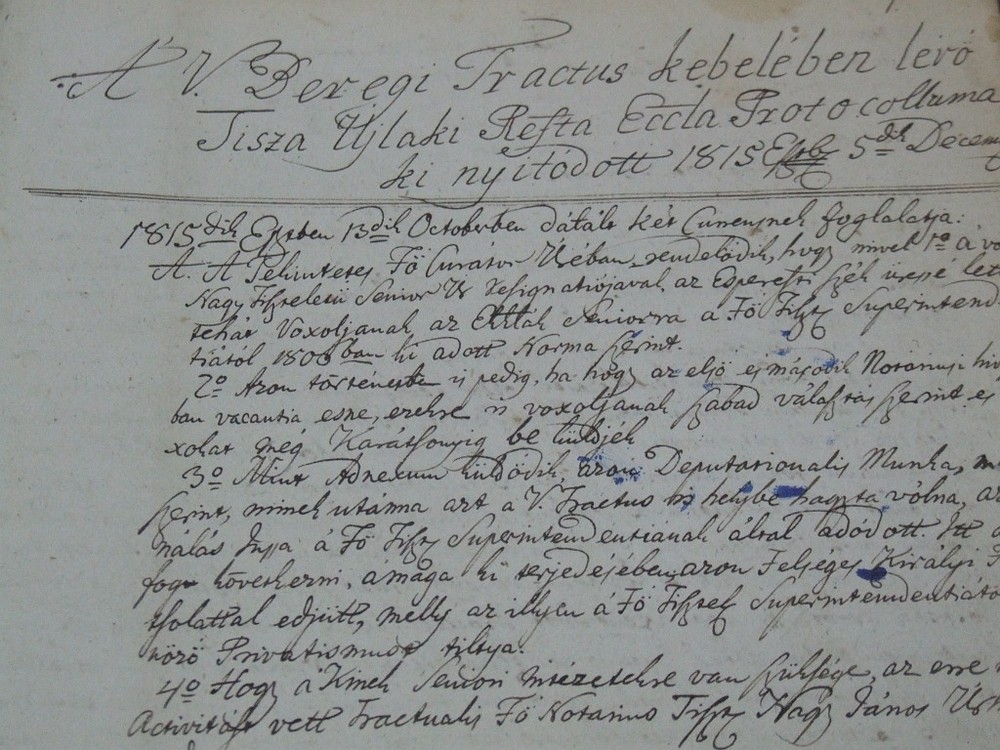 A' V. Beregi Tractus kebelében levő
Tisza Ujlaki Refta Eccla Protocolluma
ki nyitódott 1815 Esztb 5dik Decem
1815dik Esztben 13dik Octoberben dátált két Currensnek foglalatja:
A. A Tekintetes Fő Curátor Úr, rendelődik, hogy mivel 1o a
Nagy Tiszteletű Senior Úr resignatiójával, az Esperesti Szék üressé
tehát Voxoljanak az Ekklák Seniorra a Fő Tiszt Superintend
tiától 1806ban ki adott Norma szerint.
2o Azon történetben is pedig, ha hogy az első és második Notáriusi
ban vacantia esne, ezekre is voxoljanak szabad választás szerint, és
xokat meg Karátsonyig be küldjék
3o Mint Adnexum küldődik, azon Deputationalis Munka,
szerint, minekutánna azt a V. Tractus is helybe hagyta vólna,
nálás Jussa á Fő Tiszt Superintendentiának által adódott. Itt
fog következni, ámaga ki terjedésében, azon Felséges Királyi
tsolattal edjütt, melly az illyen á Fő Tisztel Superintendentiától
nöző Privatismust tiltya.
4o Hogy á Kinek Seniori intézetekre van szüksége, az erre
Activitást vett Tractualis Fő Notárius Tiszt Nagy János Úr